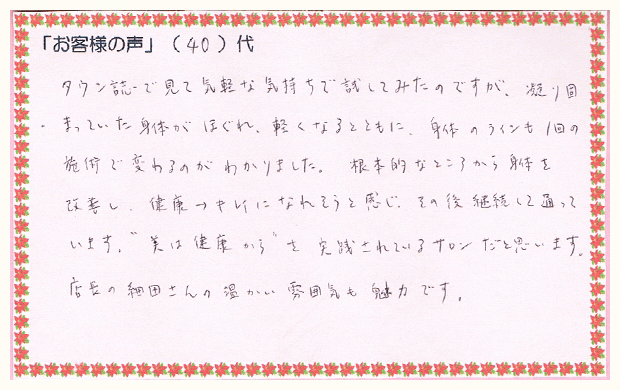 「お客様の声」（40）代
タウン誌で見て気軽な気持ちで試してみたのですが、凝り固
まっていた身体がほぐれ、軽くなるとともに、身体のラインも1回の
施術で変わるのがわかりました。根本的なところから身体を
改善し、健康→キレイになれそうと感じ、その後継続して通って
います。"美は健康から"を実践されているサロンだと思います。
店長の細田さんの温かい雰囲気も魅力です。